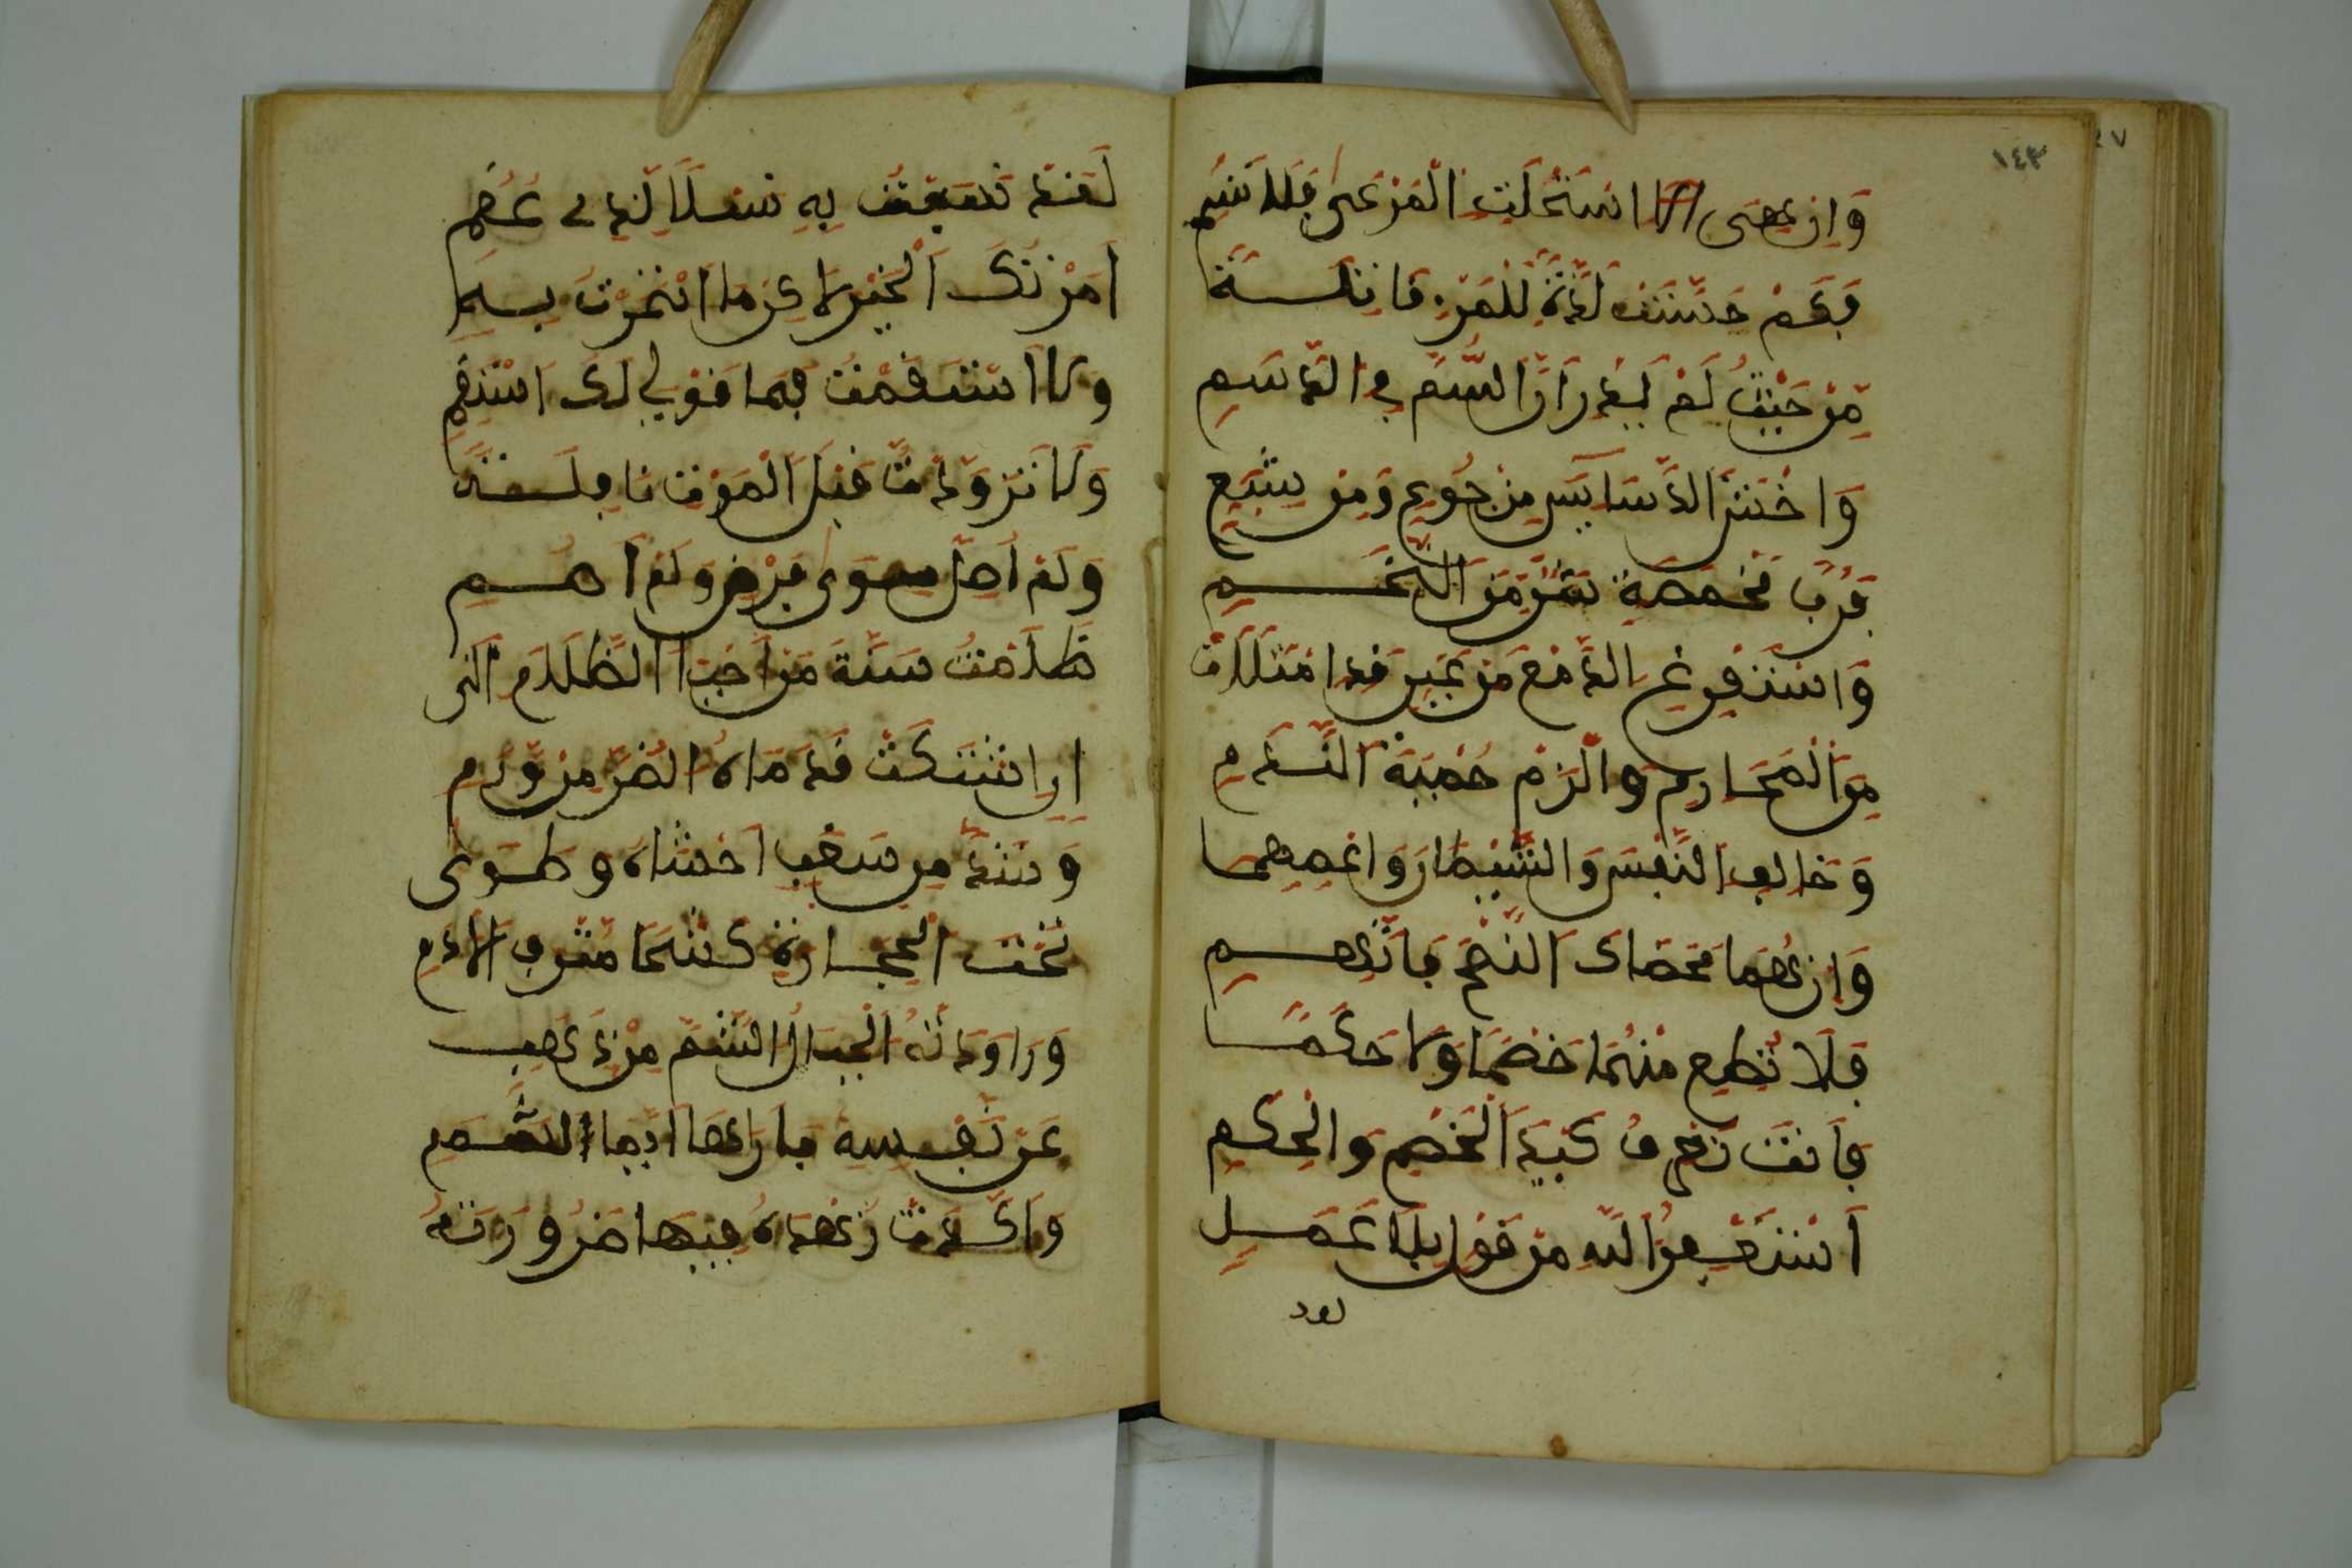 ١٤٣
وَإِن هِيَ اسْتَحْلَتِ الْمَرْعَى فَلَا تُسِمِ
فَكَمْ حَسَّنَتْ لَذَّةً لِلْمَرْءِ قَاتِلَةً
مِنْ حَيْثُ لَمْ يَدْرِ أَنَّ السُّمَّ فِي الدَّسَمِ
وَاخْشَ الدَّسَايِسَ مِنْ جُوعٍ وَمِنْ شِبَعٍ
فَرُبَّ مَخْمَصَةٍ شَرٌّ مِنَ التُّخَمِ
وَاسْتَفْرِغِ الدَّمْعَ مِنْ عَيْنٍ قَدِ امْتَلَأَتْ
مِنَ الْمَحَارِمِ وَالْزَمْ حِمْيَةَ النَّدَمِ
وَخَالِفِ النَّفْسَ وَالشَّيْطَانَ وَاعْصِهِمَا
وَإِنْ هُمَا مَحَضَاكَ النُّصْحَ فَاتَّهِمِ
فَلَا تُطِعْ مِنْهُمَا خَصْمًا وَلَا حَكَمًا
فَأَنْتَ تَعْرِفُ كَيْدَ الْخَصْمِ وَالْحَكَمِ
أَسْتَغْفِرُ اللهَ مِنْ قَوْلٍ بِلَا عَمَلٍ
لقد
لَقَدْ نَسَبْتُ بِهِ نَسْلًا لِذِي عُقُمِ
أَمَرْتُكَ الْخَيْرَ لَاكِن مَا ائْتَمَرْتُ بِهِ
وَلَا اسْتَقَمْتُ فَمَا قَوْلِي لَكَ اسْتَقِمِ
وَلَا تَزَوَّدْتُ قَبْلَ الْمَوْتِ نَافِلَةً
وَلَمْ أُصَلِّ سِوَى فَرْضٍ وَلَمْ أَصُمِ
ظَلَمْتُ سُنَّةَ مَنْ أَحْيَا الظَّلَامَ إِلَى
أَنِ اشْتَكَتْ قَدَمَاهُ الضُّرَّ مِنْ وَرَمِ
وَشَدَّ مِنْ سَغَبٍ أَحْشَاهُ وَطَوَى
تَحْتَ الْحِجَارَةِ كَشْحًا مُتْرَفَ الْأَدَمِ
وَرَاوَدَتْهُ الْجِبَالُ الشُّمُّ مِنْ ذَهَبٍ
عَنْ نَفْسِهِ فَأَرَاهَا أَيَّمَا شَمَمِ
وَأَكَّدَتْ زُهْدَهُ فِيهَا ضَرُورَتُهُ